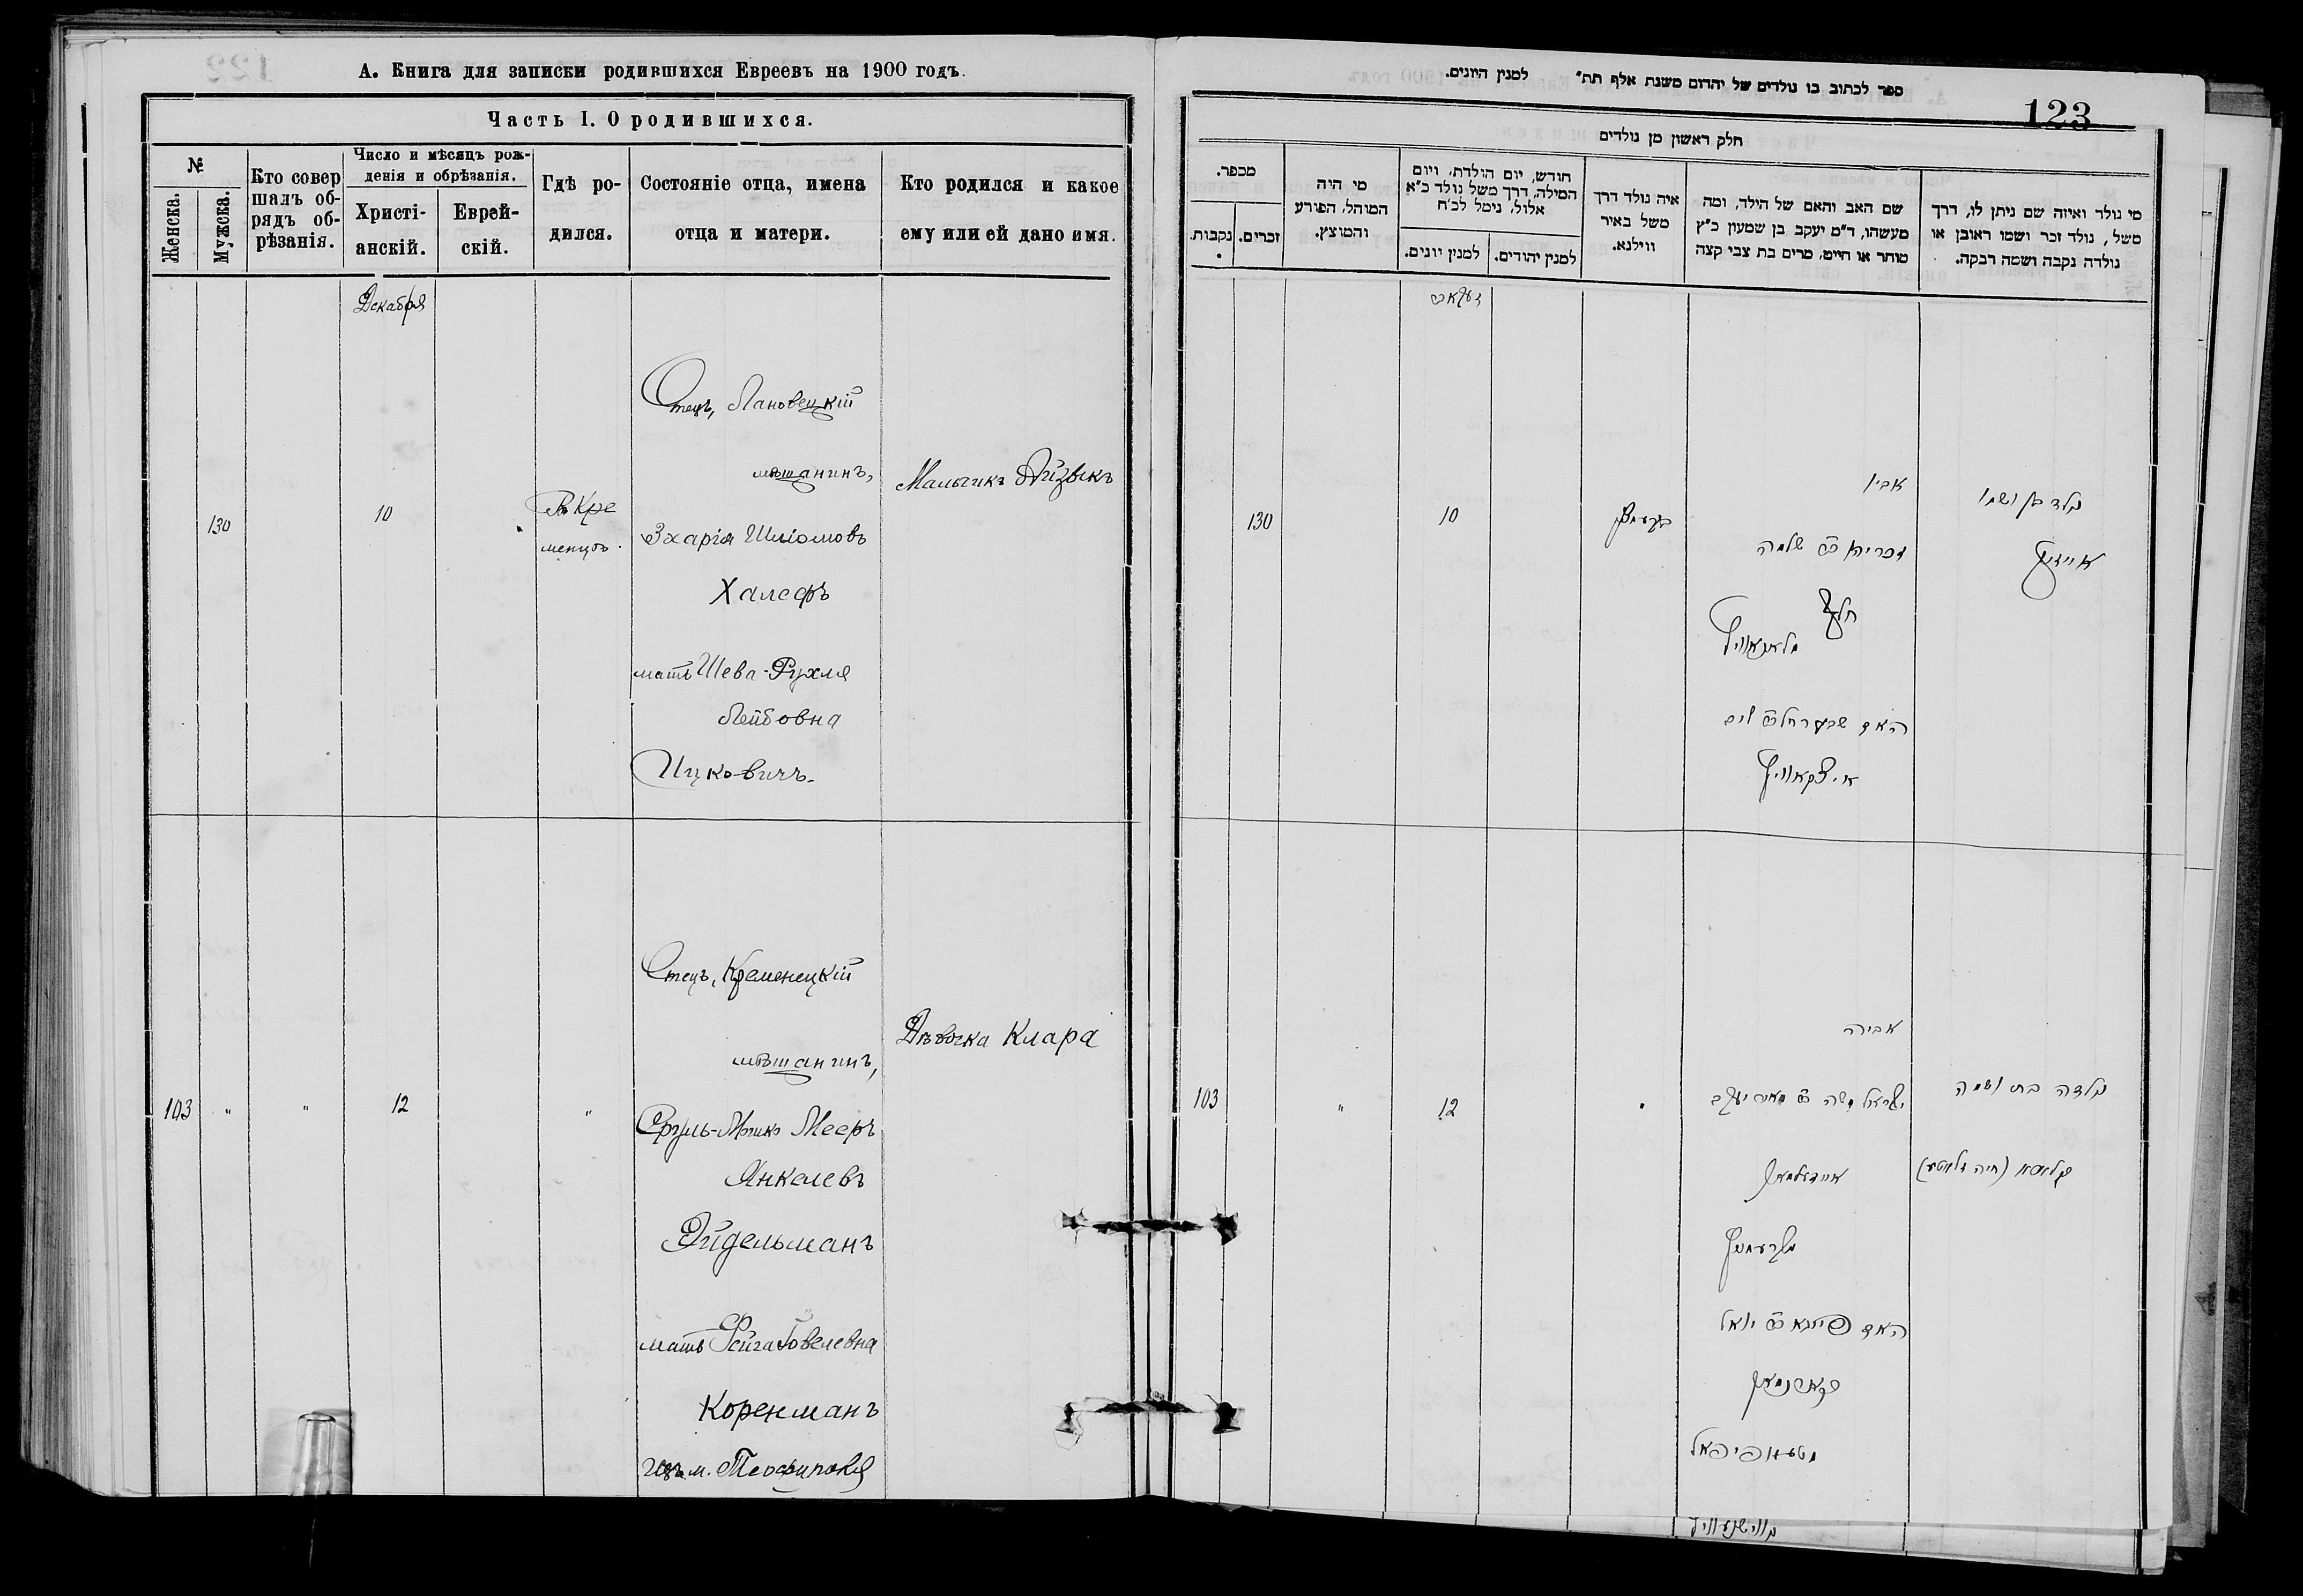 А. Книга для записки родившихся Евреевъ на 1900 годъ.
Часть I. О родившихся.
№
Женска.
Мужска.
Кто совер
шалъ об-
рядъ об-
рѣзанія.
Число и мѣсяцъ рож-
денія и обрѣзанія.
Христі-
анскій.
Еврей-
скій.
Гдѣ ро-
дился.
Состояніе отца, имена
отца и матери.
Кто родился и какое
ему или ей дано имя.
Декабря
130
10
Въ Кре
менцѣ.
Отецъ, Лановецкій
мѣщанинъ,
Зхарія Шліомовъ
Халефъ
мать Шева-Рухля
Лейбовна
Ицковичъ.
Мальчикъ Айзыкъ
103
"
"
12
"
Отецъ, Кременецкій
мѣщанинъ,
Сруль-Мошко Мееръ
Янкелевъ
Эйдельманъ
мать Фейга Іовелевна
Коренманъ
изъ м. Теофиполя
Дѣвочка Клара
ספר לכתוב בו נולדים של יהדום משנת אלף תת״ למנין היונים.
123
חלק ראשון מן נולדים
מכפר.
נקבות.
זכרים.
מי היה
המוהל, הפורע
והמוצץ.
חודש, יום הולדת, ויום
המילה, דרך משל נולד כ״א
אלול, נימל לכ״ח
למנין יונים.
למנין יהודים.
איה נולד דרך
משל באיר
ווילנא.
שם האב והאם של הילד, ומה
מעשהו, ד״מ יעקב בן שמעון כ״ץ
סוחר או חייט, מרים בת צבי קצה
מי נולד ואיזה שם ניתן לו, דרך
משל, נולד זכר ושמו ראובן או
נולדה נקבה ושמה רבקה.
130
10
אביו
זכריה ב״ר שלמה
חלף
מלאנאוויץ
האם שבע רחל ב״ר ליב
איצקאוויץ
נולד בן ושמו
אייזיק
103
"
12
אביה
ישראל משה ב״ר מאיר יעקב
איידעלמאן
מקרעמניץ
האם פייגא ב״ר יואל
קארנמאן
נולדה בת ושמה